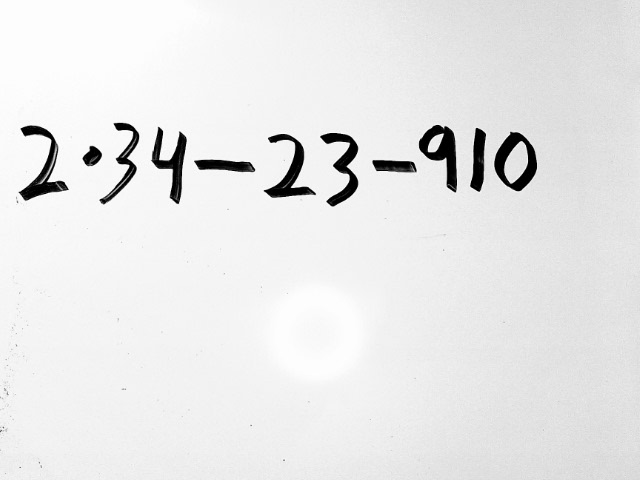 2·34-23-910